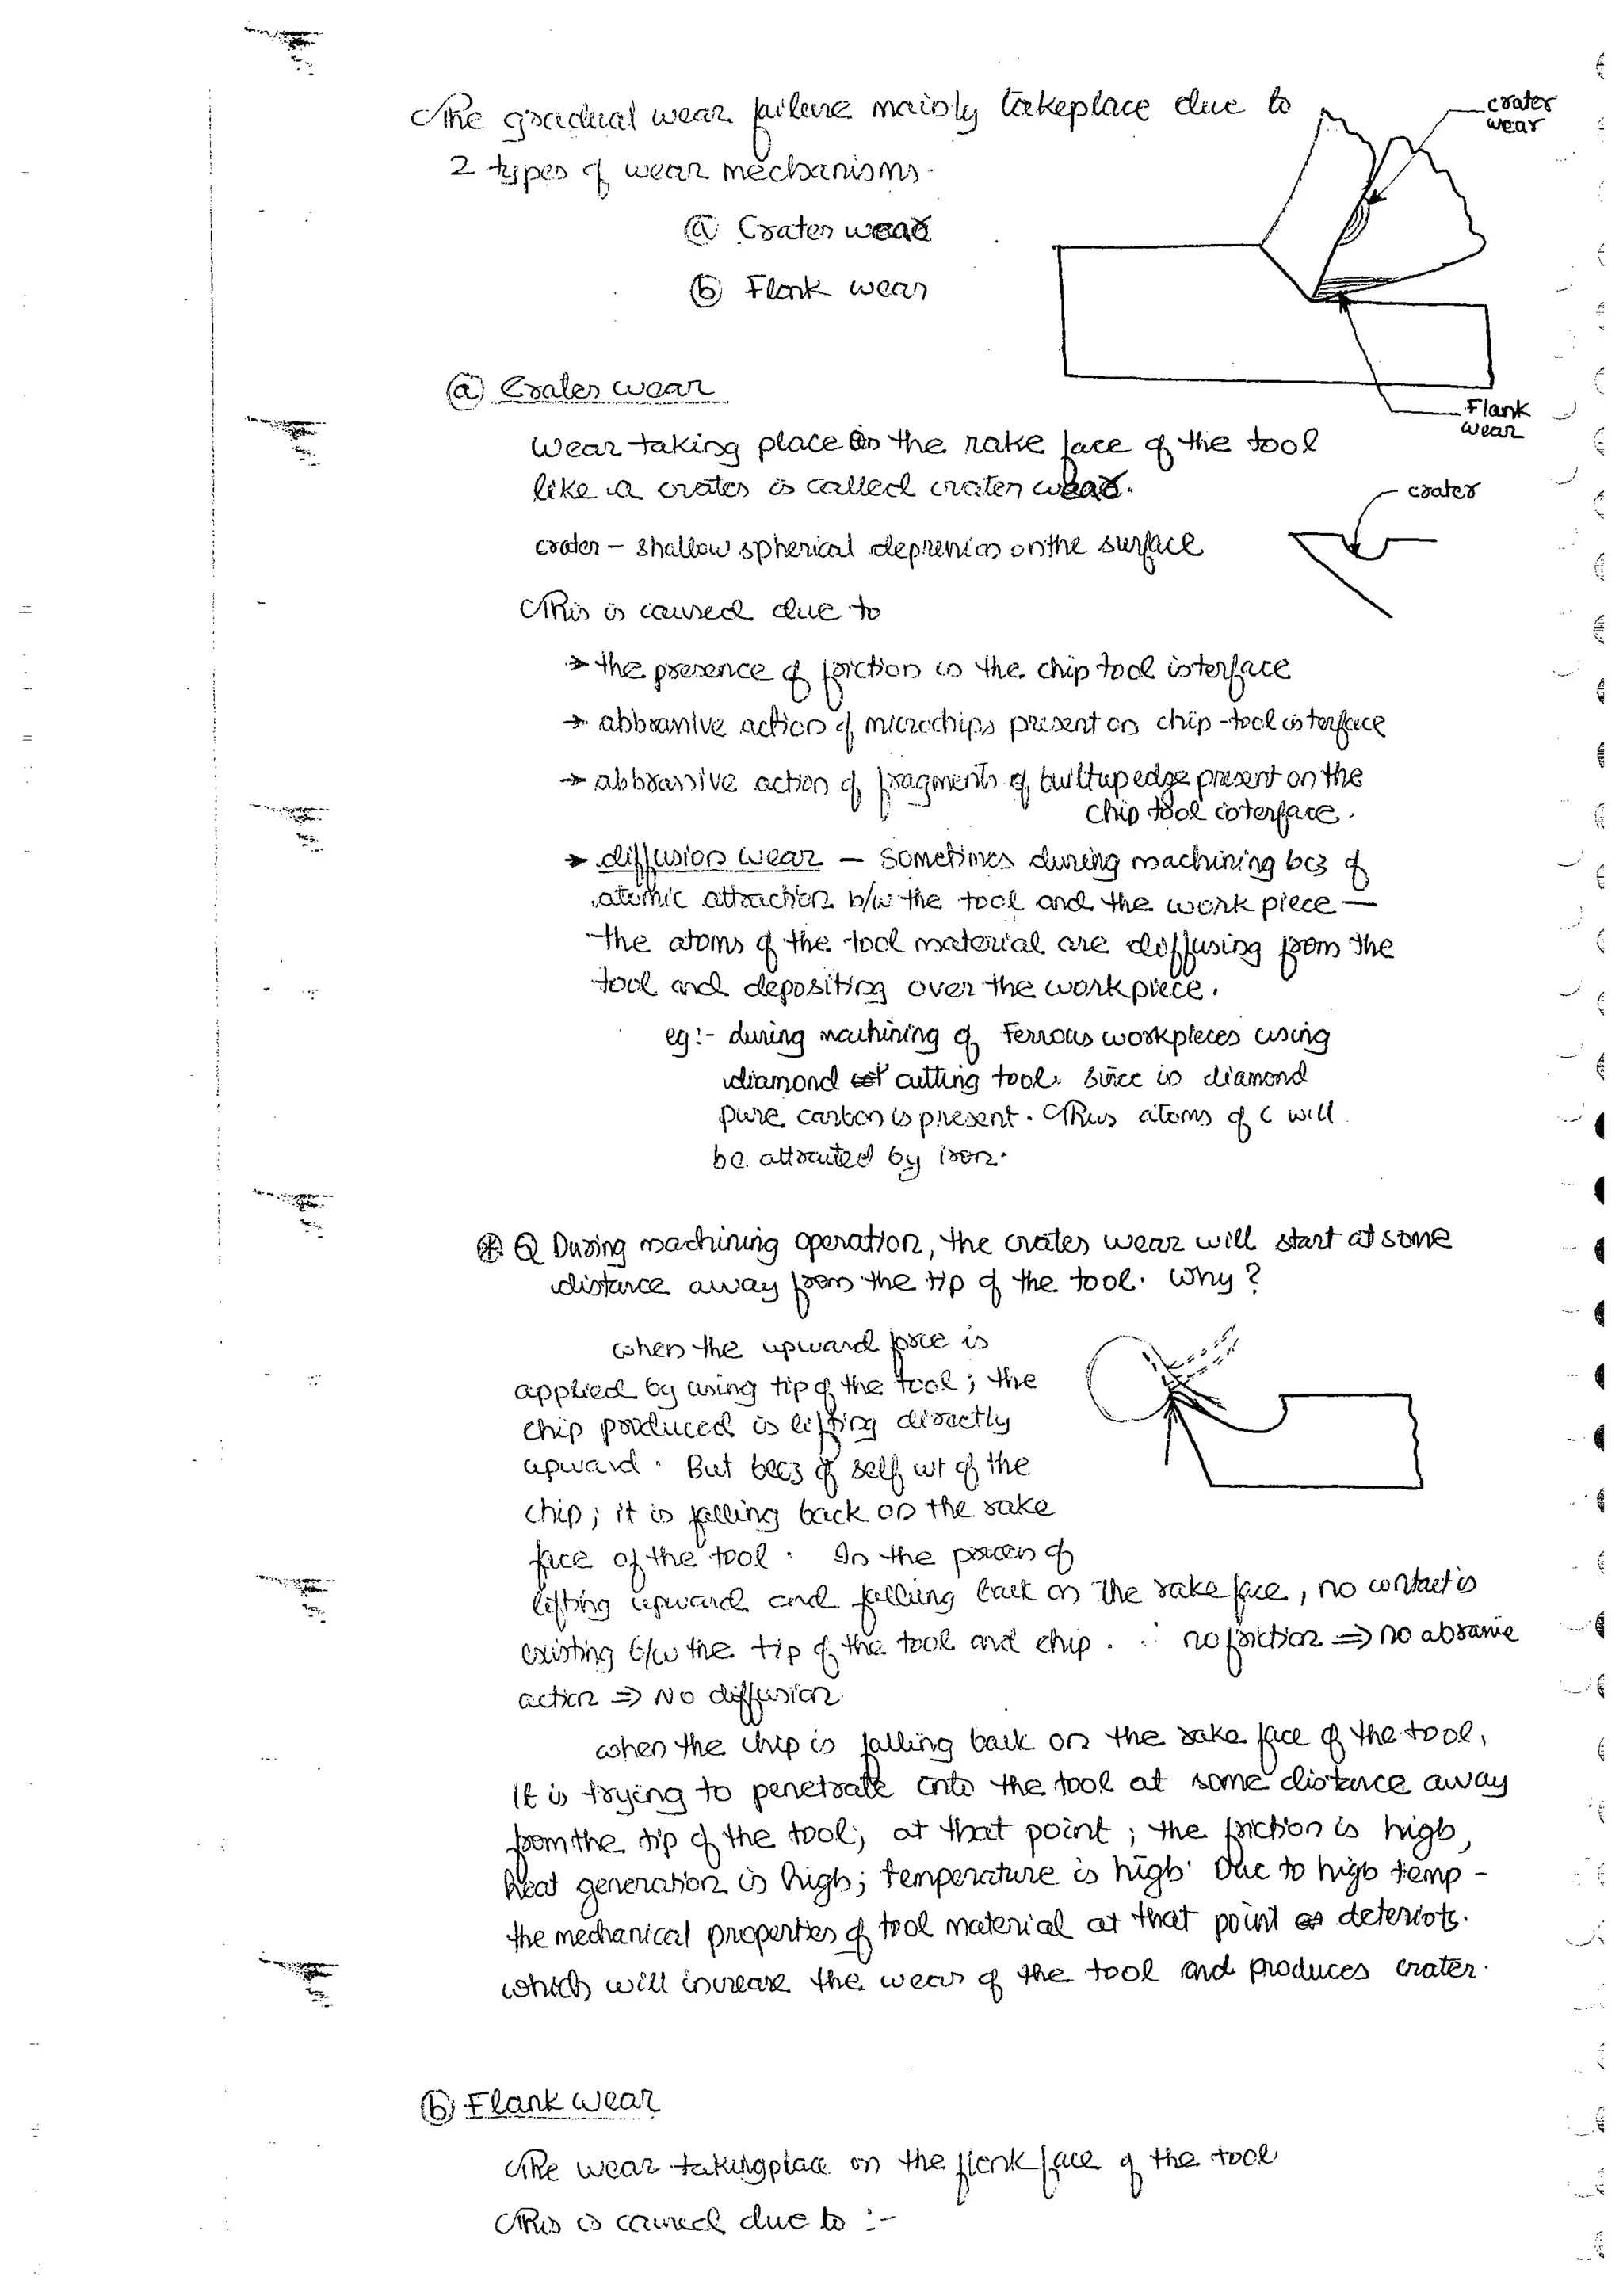 The gradual wear failure mainly takeplace due to
2 types of wear mechanisms.
(a) Crater wear
(b) Flank wear
crater
wear
Flank
wear
(a) Crater wear
Wear taking place on the rake face of the tool
like a crater is called crater wear.
crater – shallow spherical depression on the surface
crater
This is caused due to
→ the presence of friction in the chip tool interface
→ abbrassive action of microchips present on chip-tool interface
→ abbrassive action of fragments of builtup edge present on the
chip tool interface.
→ diffusion wear – sometimes during machining bcz of
atomic attraction b/w the tool and the work piece –
the atoms of the tool material are diffusing from the
tool and depositing over the workpiece.
eg:- during machining of Ferrous workpieces using
diamond cutting tool. Since in diamond
pure carbon is present. Thus atoms of C will
be attracted by iron.
* Q During machining operation, the crater wear will start at some
distance away from the tip of the tool. Why?
when the upward force is
applied by using tip of the tool; the
chip produced is lifting directly
upward. But becz of self wt of the
chip; it is falling back on the rake
face of the tool. In the process of
lifting upward and falling back on the rake face, no contact is
existing b/w the tip of the tool and chip. ∴ no friction ⇒ no abrasive
action ⇒ No diffusion.
when the chip is falling back on the rake face of the tool,
It is trying to penetrate into the tool at some distance away
from the tip of the tool; at that point; the friction is high,
heat generation is high; temperature is high. Due to high temp –
the mechanical properties of tool material at that point deteriots.
which will increase the wear of the tool and produces crater.
(b) Flank wear
The wear takingplace on the flank face of the tool
This is caused due to :-